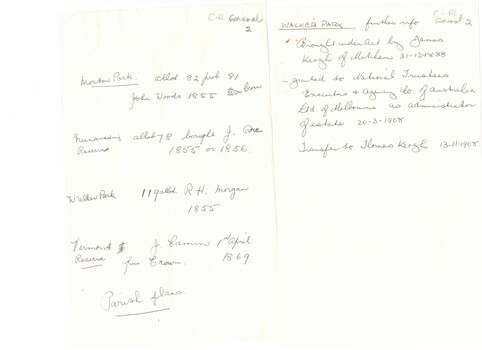 C.R. General
2
Morton Park. allot 82 prob 81
John Woods 1855
Nunawading allot 78 bought J.
Reserve 1855 or 1856.
Walker Park 119 allot. R.H. Morgan
1855
Vermont J. Camm 1st April
Reserve from Crown. 1869.
Parish plans.
WALKER PARK further info
2
Brought under Act by James
Keogh of Mitcham 31-12-1888
- granted to National Trustees
Executors & Agency Co of Australia
Ltd of Melbourne as administrator
of estate 20-3-1908
Transfer to Thomas Keogh 13-11-1908